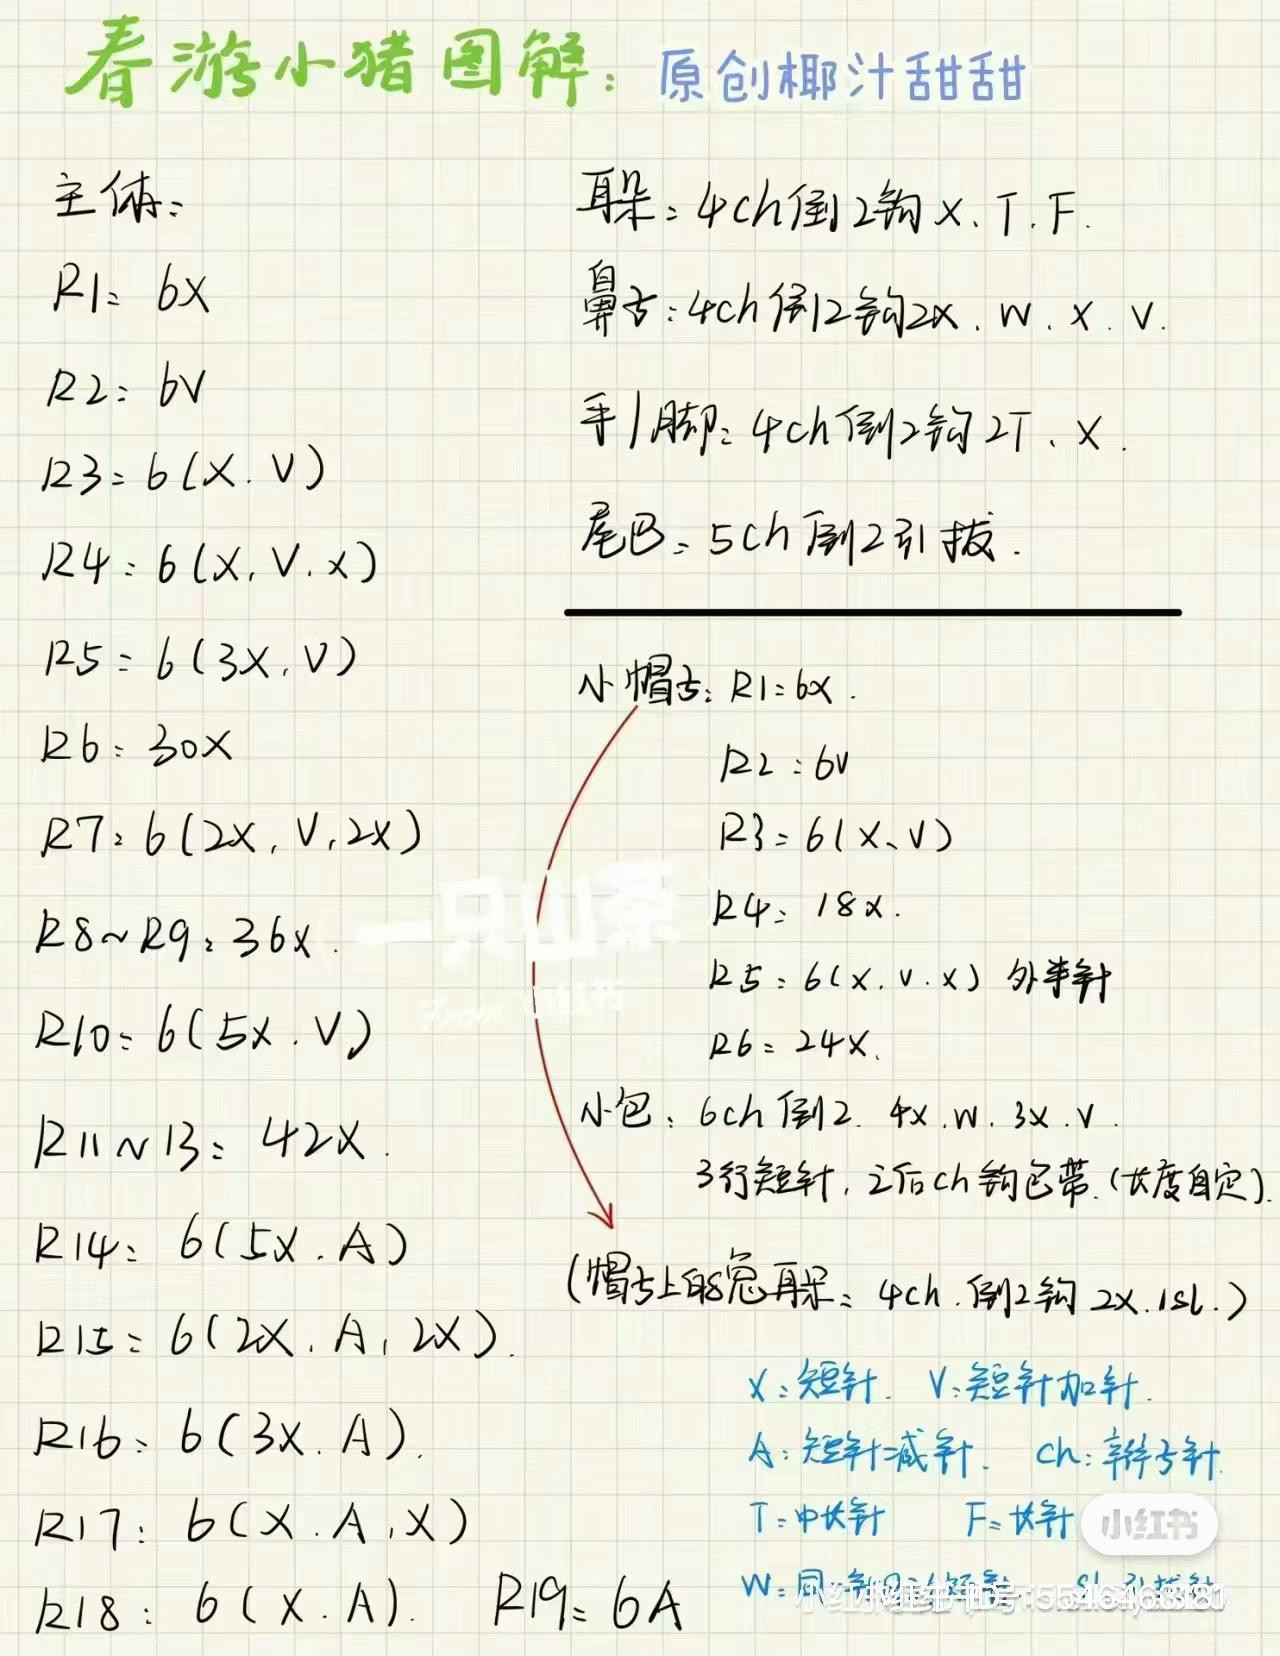 春游小猪图解：原创椰汁甜甜
主体：
R1：6X
R2：6V
R3：6(X.V)
R4：6(X.V.X)
R5：6(3X.V)
R6：30X
R7：6(2X.V.2X)
R8~R9：36X.
R10：6(5X.V)
R11~13：42X.
R14：6(5X.A)
R15：6(2X.A.2X).
R16：6(3X.A).
R17：6(X.A.X)
R18：6(X.A).
R19：6A
耳朵：4ch倒2钩X、T.F.
鼻子：4ch倒2钩2X.W.X.V.
手/脚：4ch倒2钩2T、X.
尾巴：5ch倒2引拔.
小帽子：R1：6X.
R2：6V
R3：6(X、V)
R4：18X.
R5：6(X.V.X)外半针
R6：24X、
小包：6ch倒2.4X.W.3X.V.
3行短针，之后ch钩包带.(长度自定).
(帽子上的 耳朵：4ch.倒2钩2X.1sl.)
X：短针. V：短针加针.
A：短针减针. ch：辫子针.
T：中长针 F：长针
W：
一只山茶
From 小红书
小红书